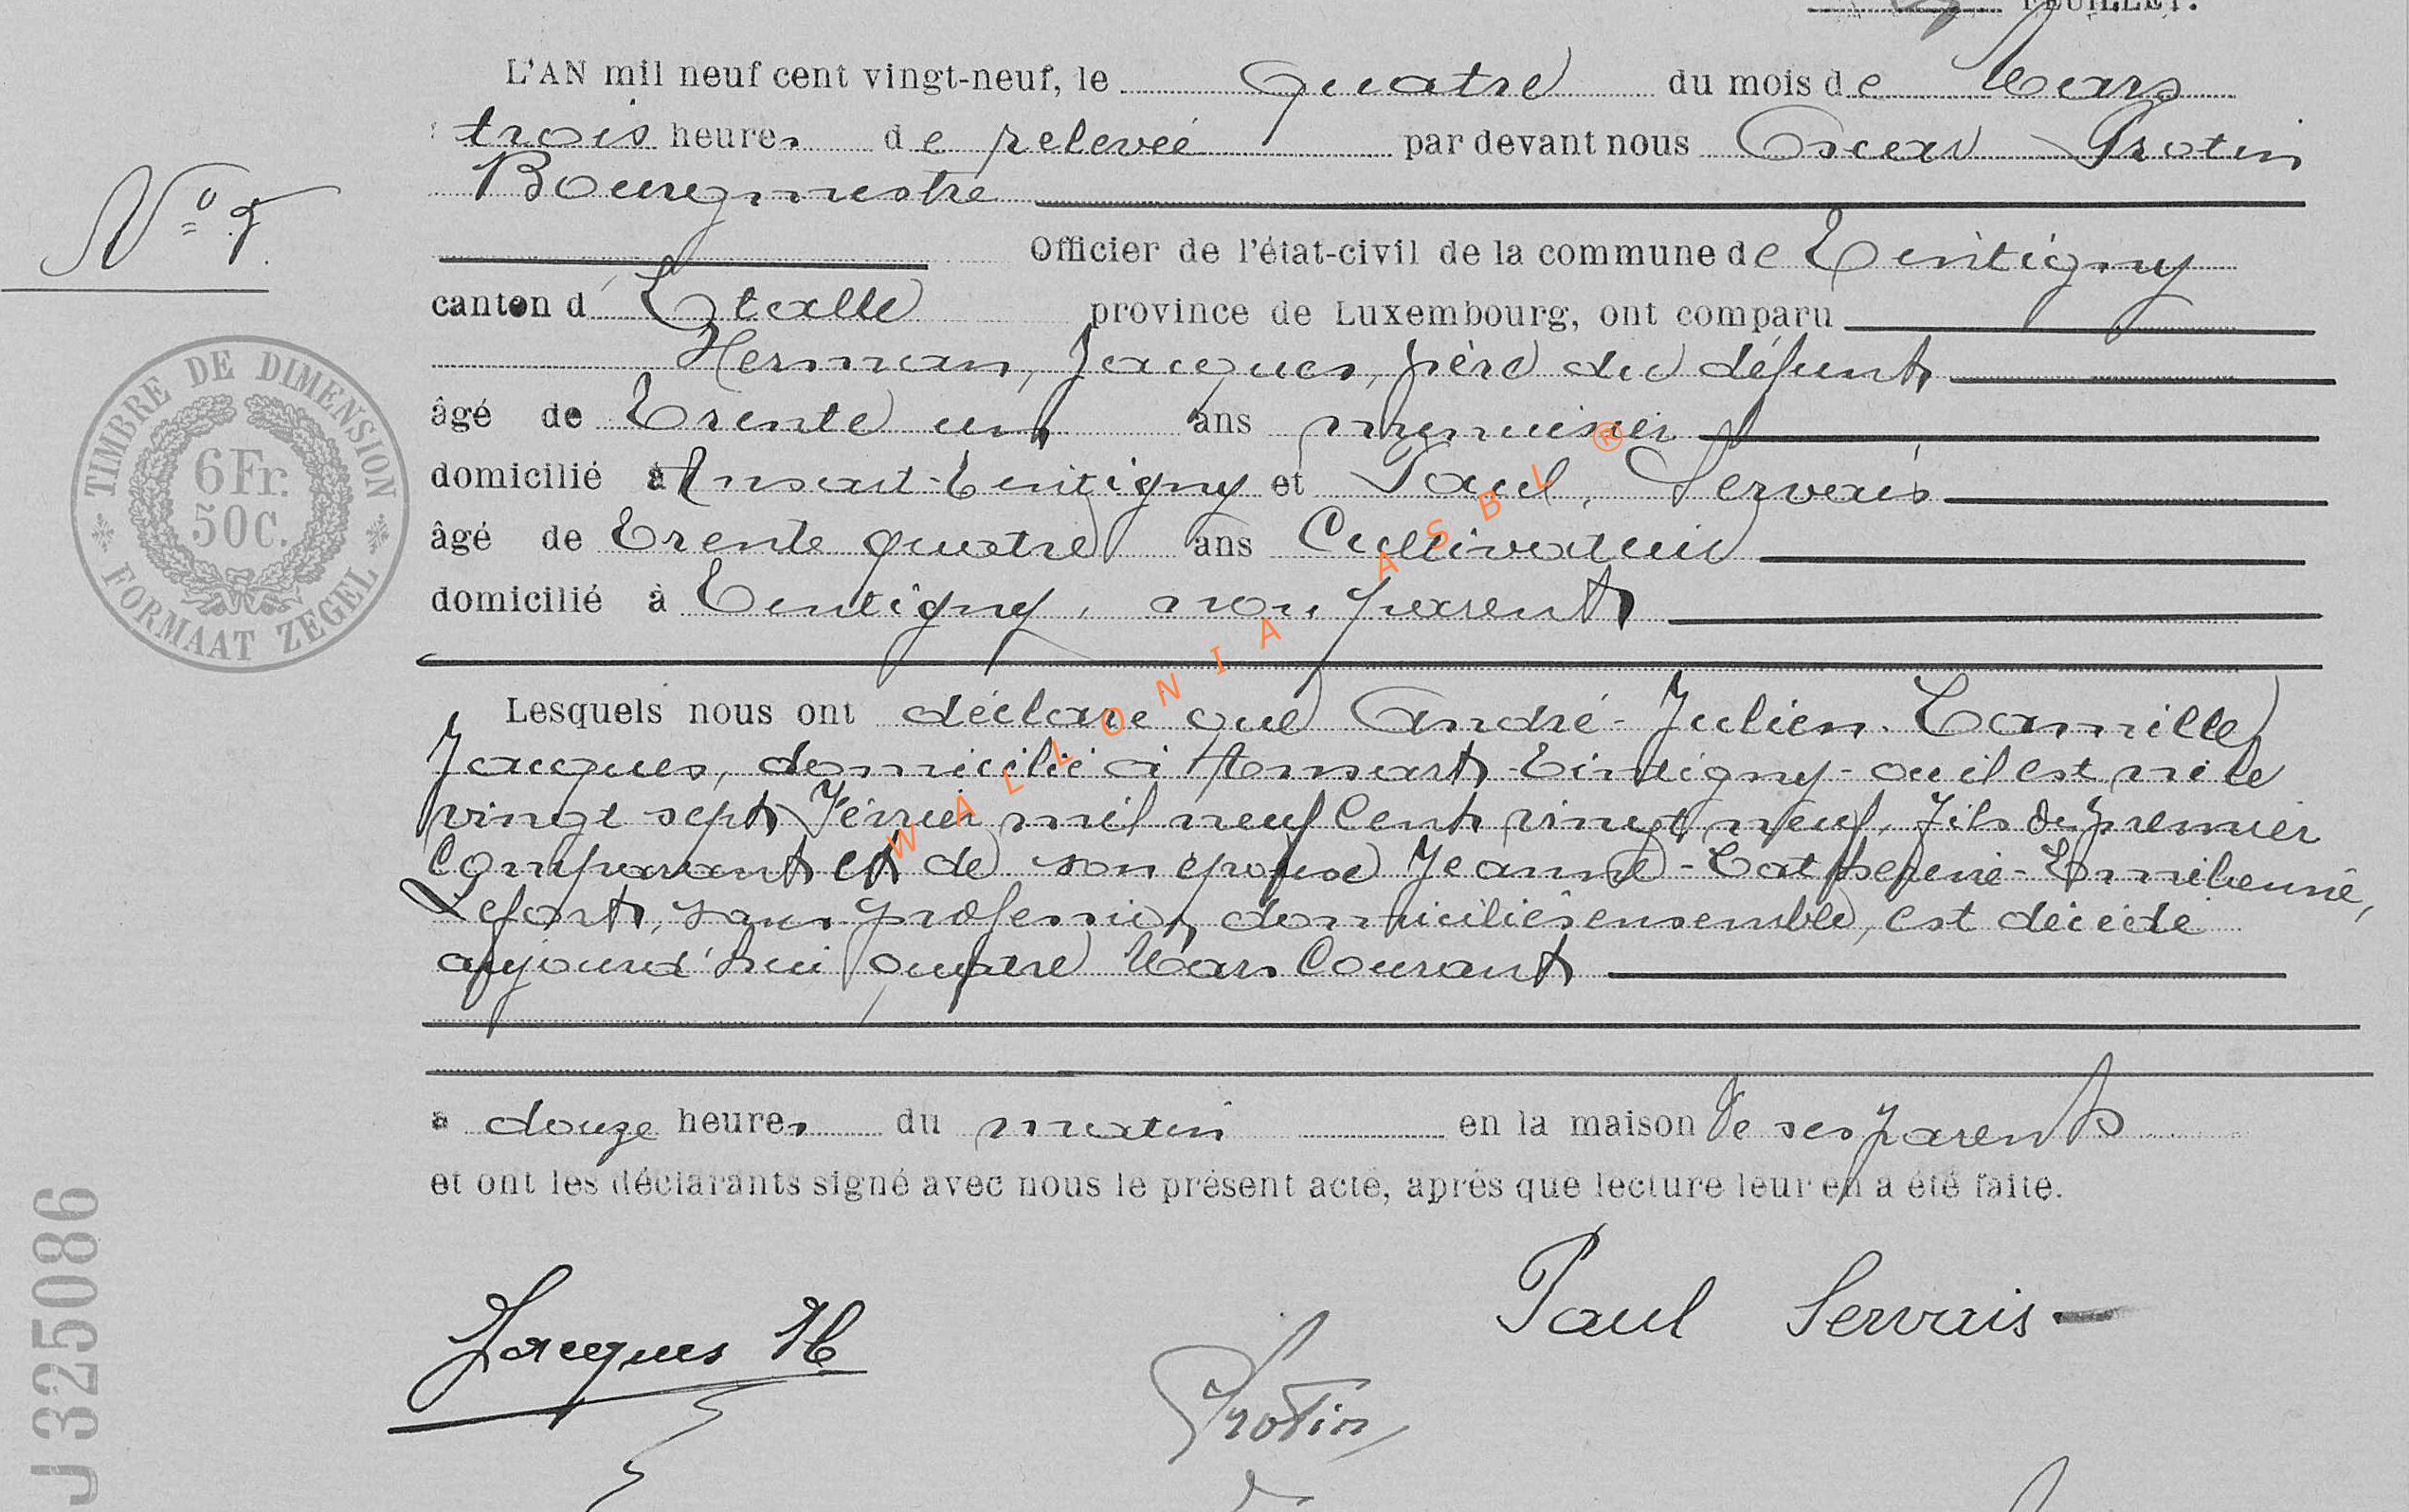 FEUILLET.
L'AN mil neuf cent vingt-neuf, le quatre du mois de Mars
trois heures de relevée par devant nous Oscar Protin
Bourgmestre
Officier de l'état-civil de la commune de Tintigny
canton d'Etalle province de Luxembourg, ont comparu
Herman, Jacques, père du défunt
âgé de Trente un ans menuisier
domicilié à Ansart-Tintigny et Paul, Servais
âgé de Trente quatre ans Cultivateur
domicilié à Tintigny, non parent
Lesquels nous ont déclaré que André-Julien-Camille
Jacques, domicilié à Ansart-Tintigny-où il est né le
vingt sept Février mil neuf Cent vingt neuf, fils du premier
Comparant et de son épouse Jeanne-Catherine-Emilienne,
Lefort, sans profession, domiciliés ensemble, est décédé
aujourd'hui quatre Mars Courant
à douze heures du matin en la maison de ses parents
et ont les déclarants signé avec nous le présent acte, après que lecture leur en a été faite.
Jacques H
Paul Servais
Protin
N°
TIMBRE DE DIMENSION
6 Fr.
50 C.
FORMAAT ZEGEL
J 325086
WALLONIA ASBL ®